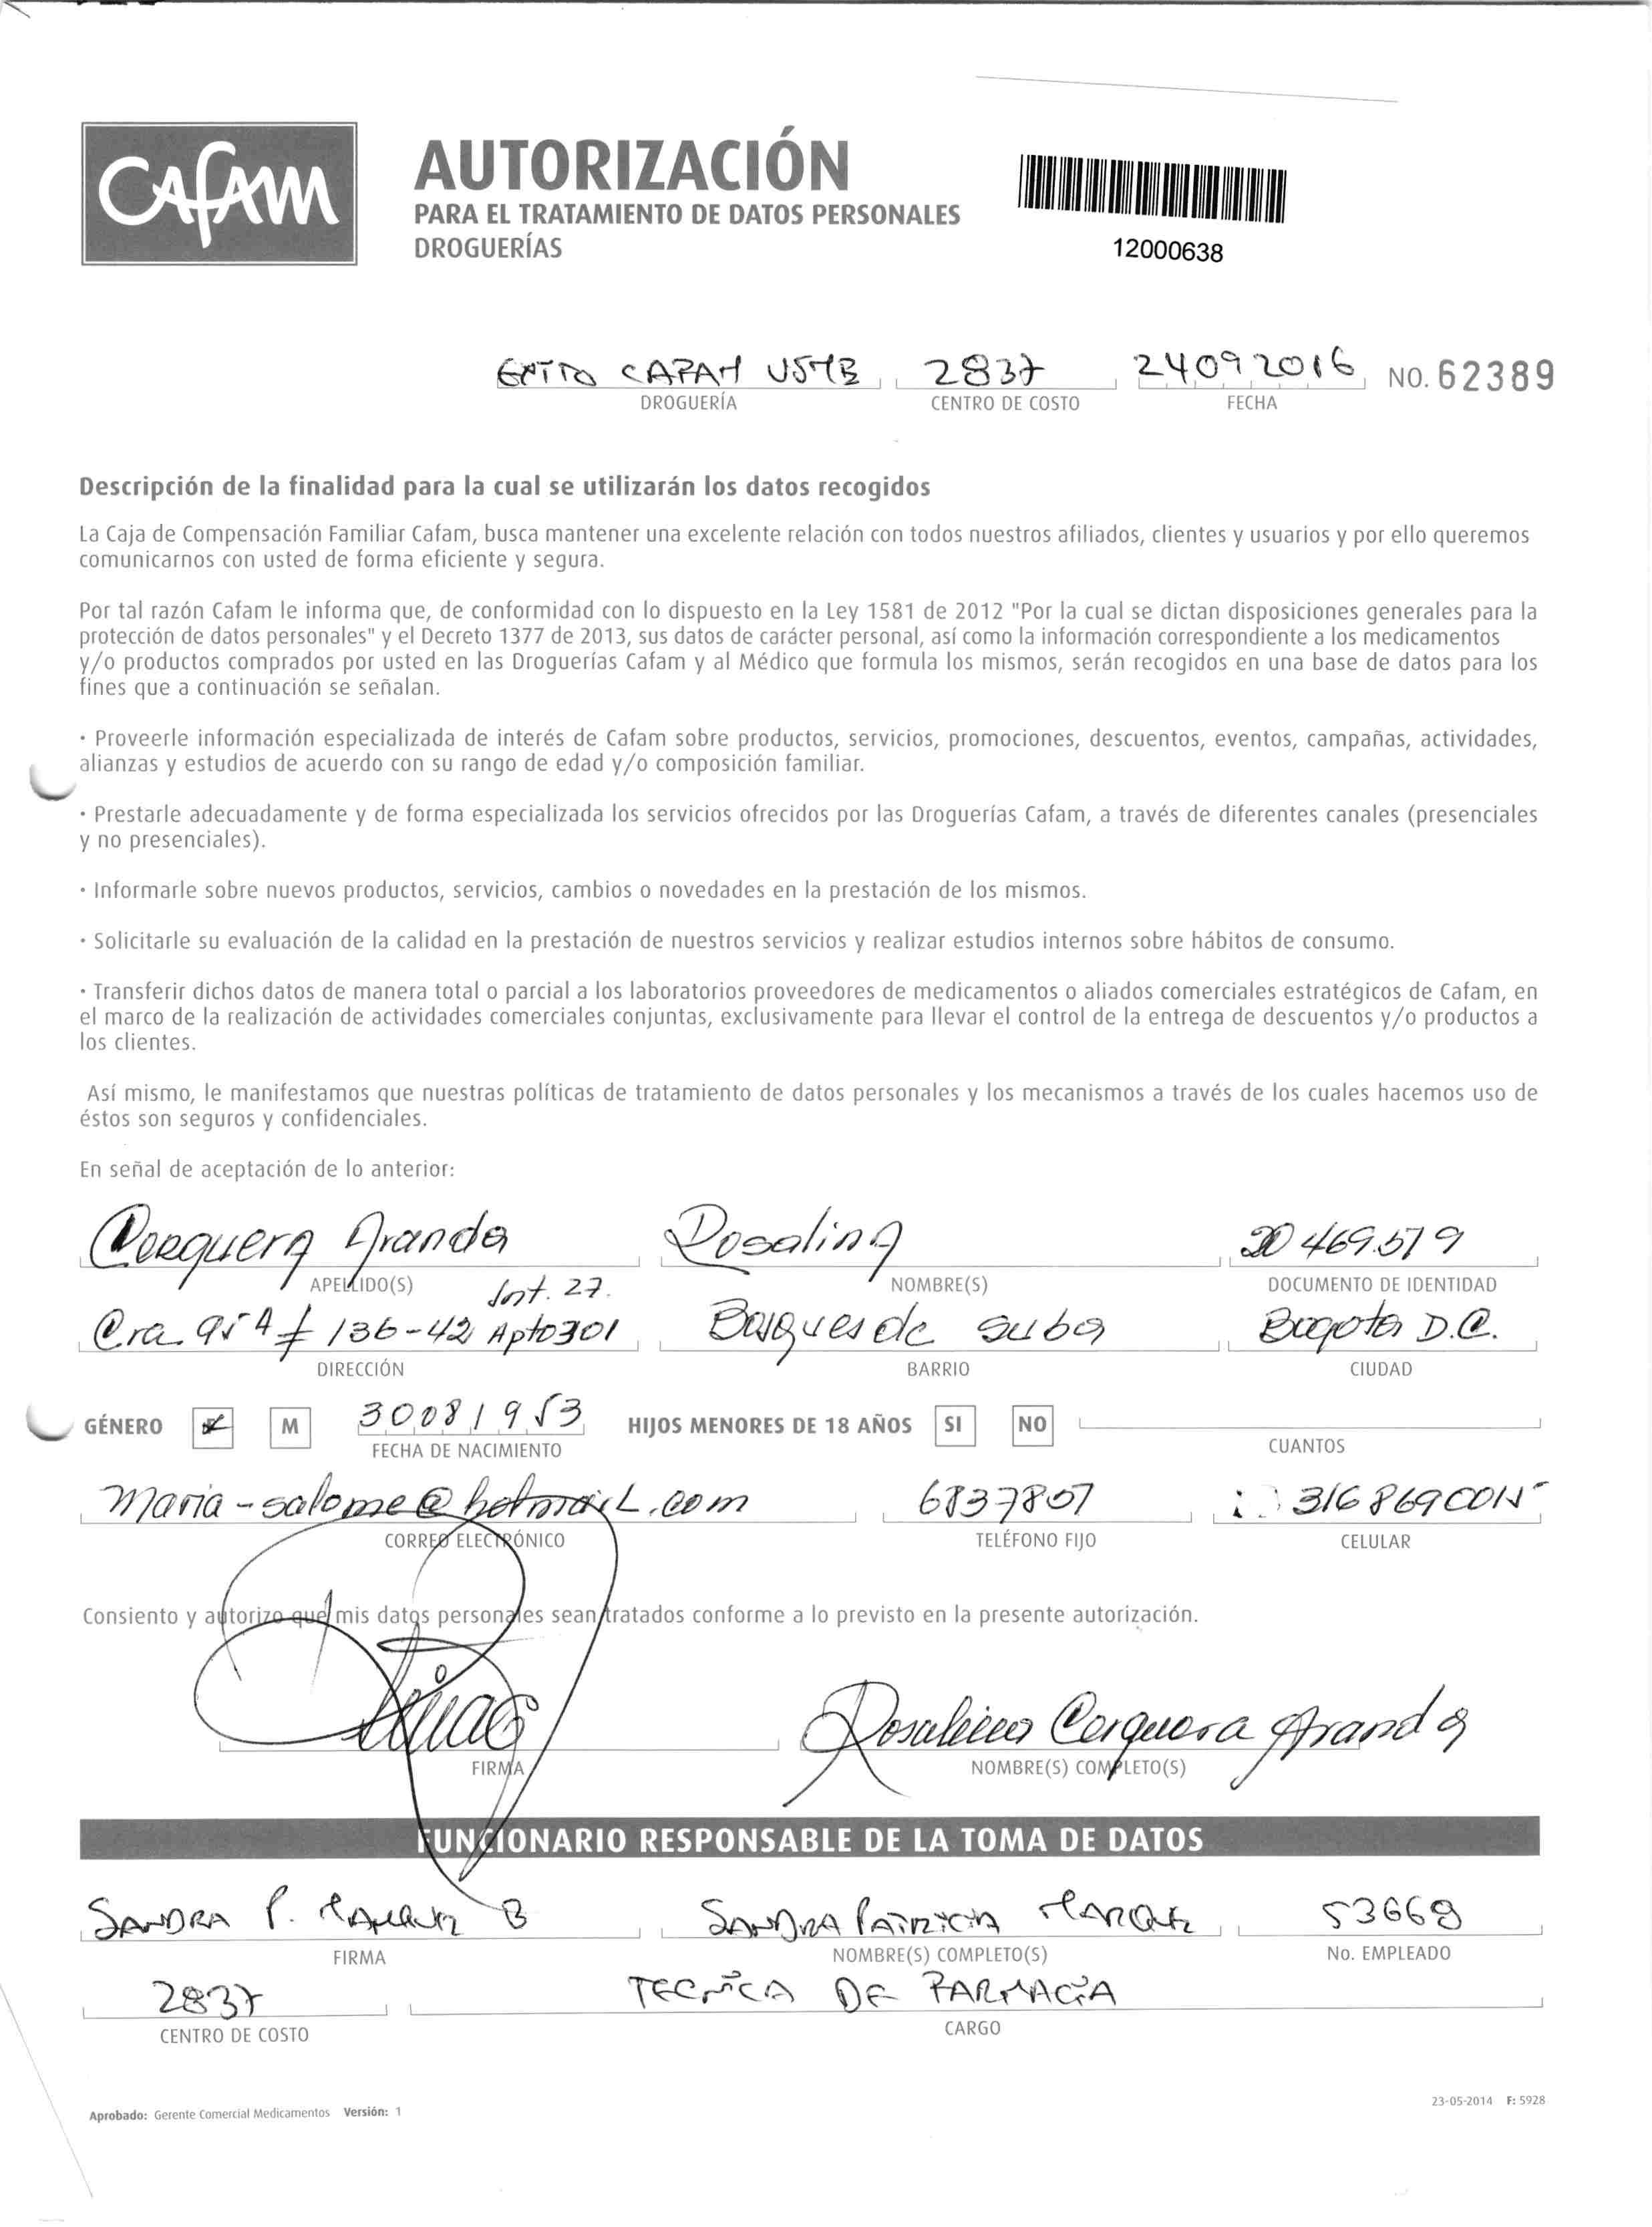 CAFAM
AUTORIZACIÓN
PARA EL TRATAMIENTO DE DATOS PERSONALES
DROGUERÍAS
12000638
CAFAM 2837 24092016 NO. 62389
DROGUERÍA CENTRO DE COSTO FECHA
Descripción de la finalidad para la cual se utilizarán los datos recogidos
La Caja de Compensación Familiar Cafam, busca mantener una excelente relación con todos nuestros afiliados, clientes y usuarios y por ello queremos
comunicarnos con usted de forma eficiente y segura.
Por tal razón Cafam le informa que, de conformidad con lo dispuesto en la Ley 1581 de 2012 "Por la cual se dictan disposiciones generales para la
protección de datos personales" y el Decreto 1377 de 2013, sus datos de carácter personal, así como la información correspondiente a los medicamentos
y/o productos comprados por usted en las Droguerías Cafam y al Médico que formula los mismos, serán recogidos en una base de datos para los
fines que a continuación se señalan.
· Proveerle información especializada de interés de Cafam sobre productos, servicios, promociones, descuentos, eventos, campañas, actividades,
alianzas y estudios de acuerdo con su rango de edad y/o composición familiar.
· Prestarle adecuadamente y de forma especializada los servicios ofrecidos por las Droguerías Cafam, a través de diferentes canales (presenciales
y no presenciales).
· Informarle sobre nuevos productos, servicios, cambios o novedades en la prestación de los mismos.
· Solicitarle su evaluación de la calidad en la prestación de nuestros servicios y realizar estudios internos sobre hábitos de consumo.
· Transferir dichos datos de manera total o parcial a los laboratorios proveedores de medicamentos o aliados comerciales estratégicos de Cafam, en
el marco de la realización de actividades comerciales conjuntas, exclusivamente para llevar el control de la entrega de descuentos y/o productos a
los clientes.
Así mismo, le manifestamos que nuestras políticas de tratamiento de datos personales y los mecanismos a través de los cuales hacemos uso de
éstos son seguros y confidenciales.
En señal de aceptación de lo anterior:
Cerquera Aranda Rosalina 20469.579
APELLIDO(S) NOMBRE(S) DOCUMENTO DE IDENTIDAD
Int. 27.
Cra 95A # 136-42 Apto301 Bosques de suba Bogota D.C.
DIRECCIÓN BARRIO CIUDAD
GÉNERO M 30081953 HIJOS MENORES DE 18 AÑOS SI NO
FECHA DE NACIMIENTO CUANTOS
maria-salome@hotmail.com 6837807 316869
CORREO ELECTRÓNICO TELÉFONO FIJO CELULAR
Consiento y autorizo que mis datos personales sean tratados conforme a lo previsto en la presente autorización.
Rosalina Cerquera Aranda
FIRMA NOMBRE(S) COMPLETO(S)
FUNCIONARIO RESPONSABLE DE LA TOMA DE DATOS
SANDRA P. MARQUEZ B SANDRA PATRICIA MARQUEZ 53669
FIRMA NOMBRE(S) COMPLETO(S) No. EMPLEADO
2837 TECNICA DE FARMACIA
CENTRO DE COSTO CARGO
Aprobado: Gerente Comercial Medicamentos Versión: 1 23-05-2014 F: 5928